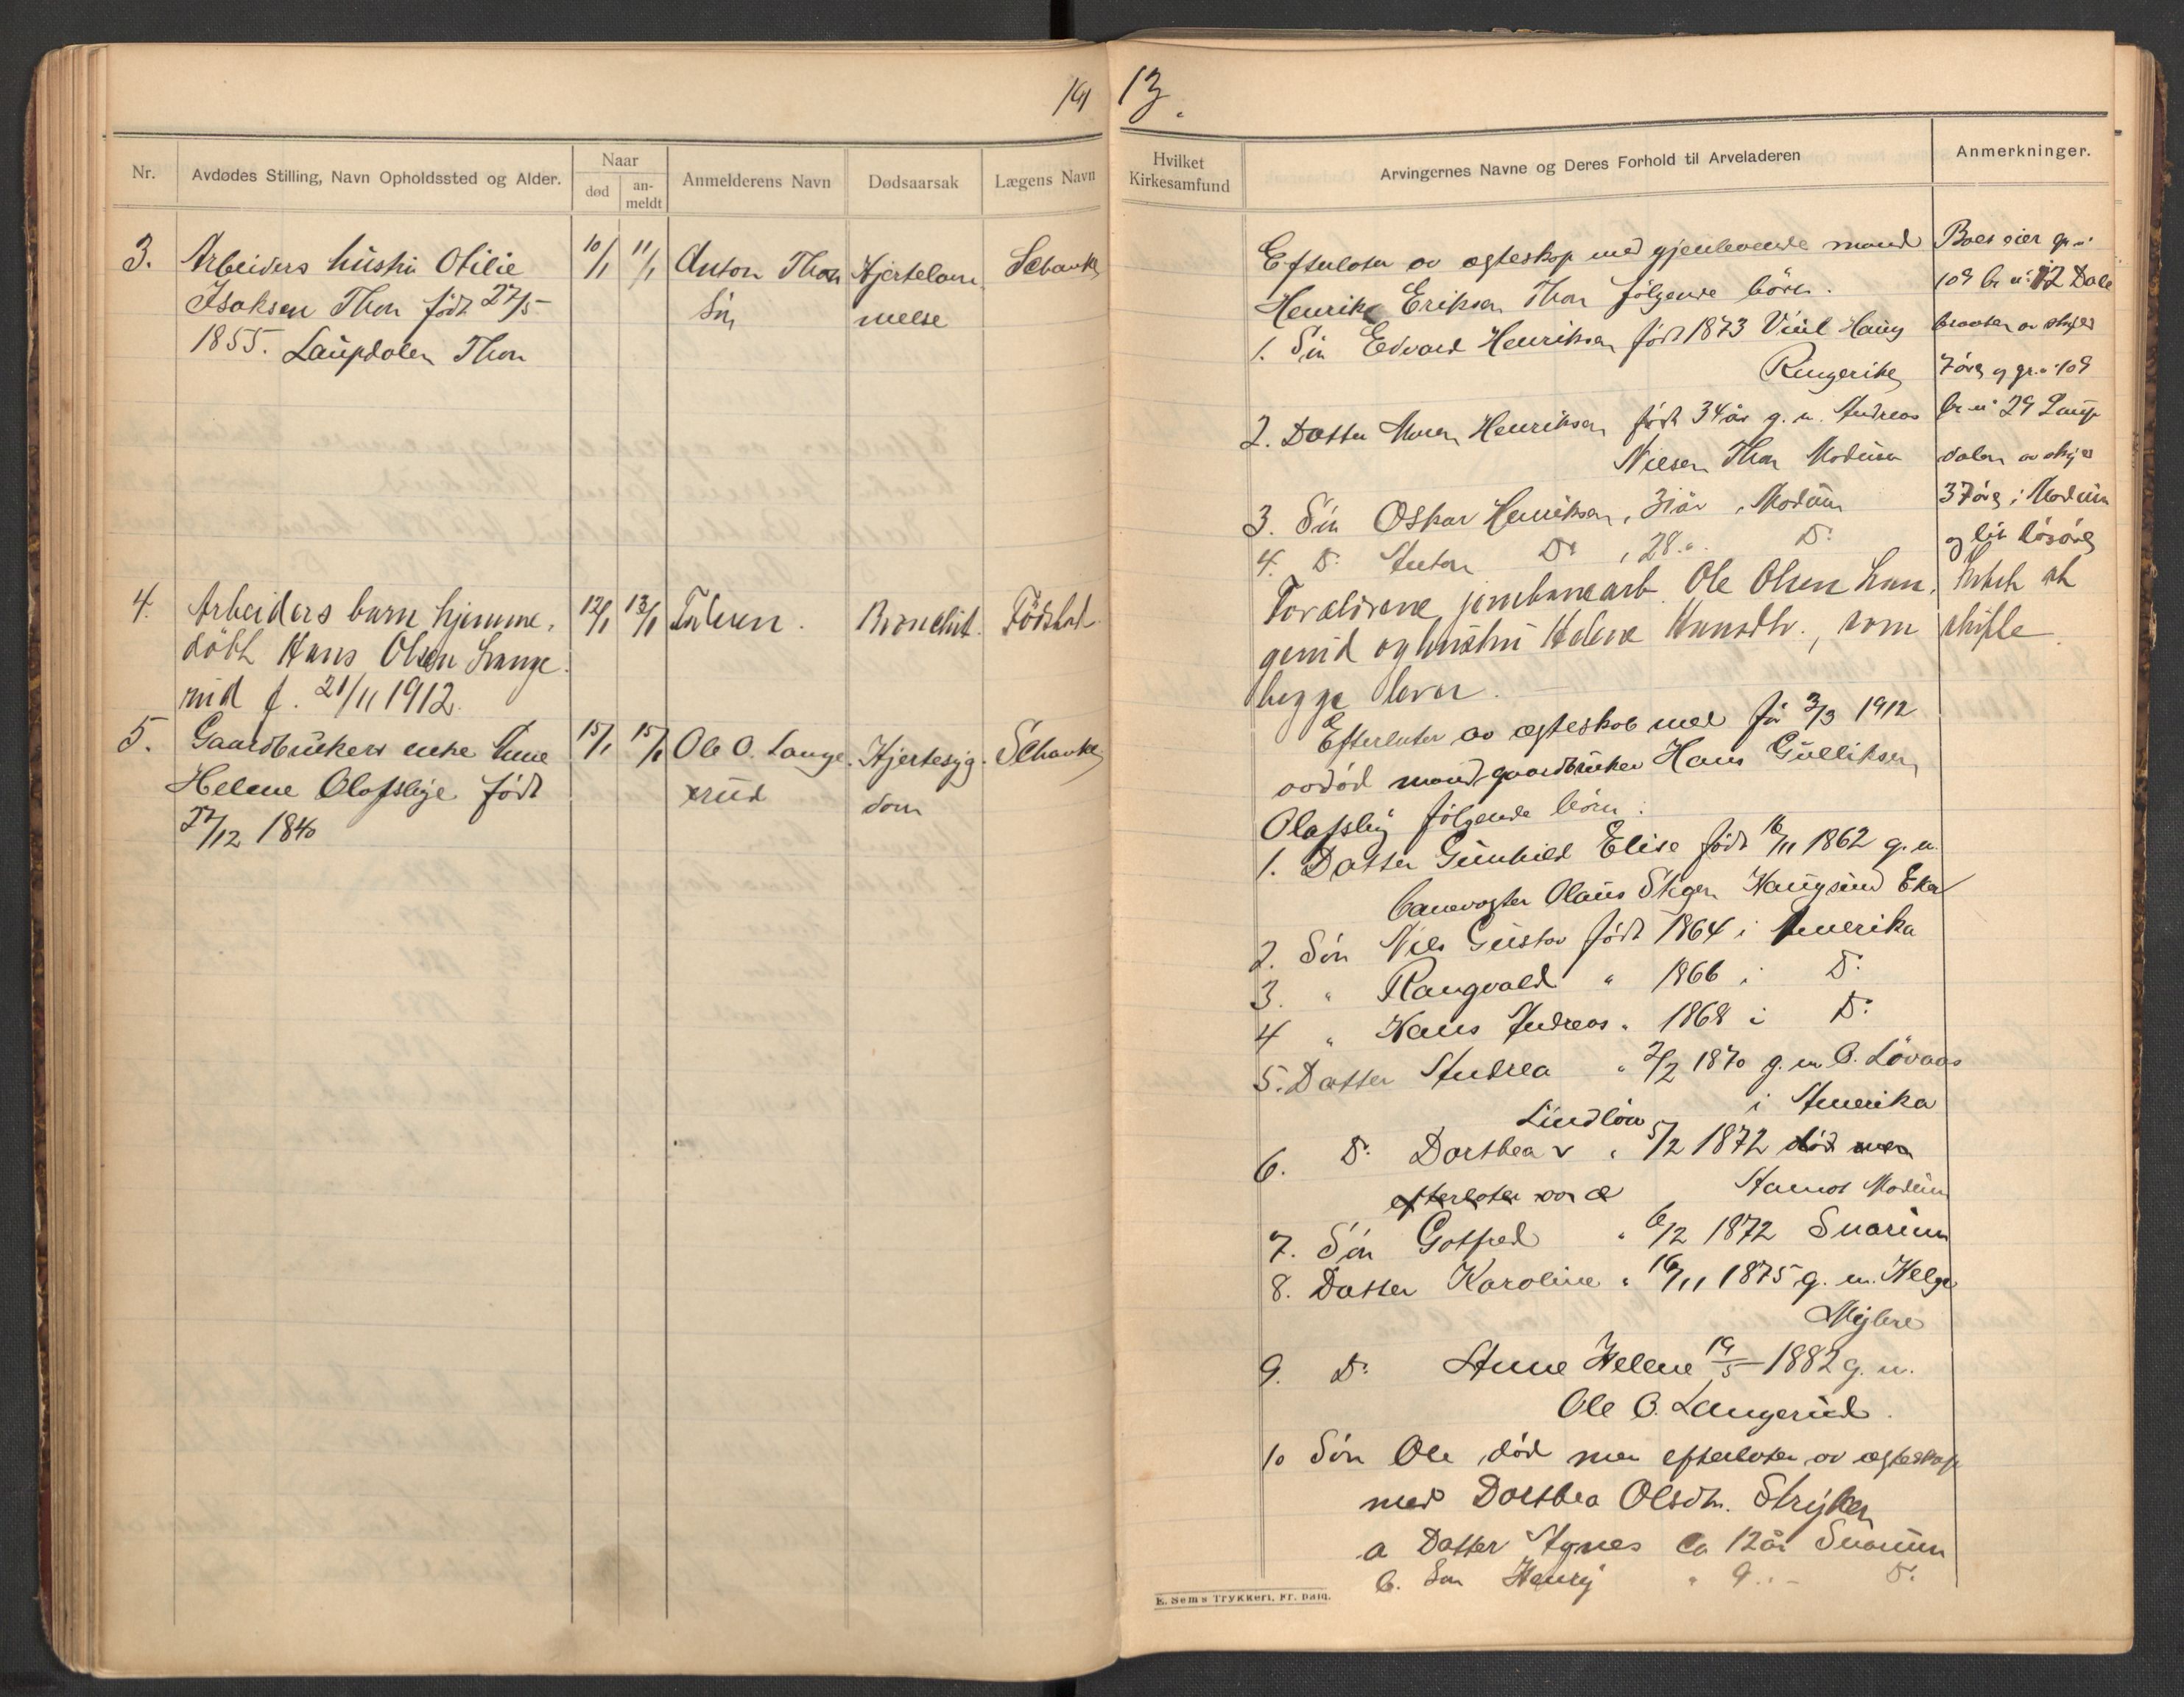 191
13.
Nr.
Avdødes Stilling, Navn Opholdssted og Alder.
Naar
død
an-
meldt
Anmelderens Navn
Dødsaarsak
Lægens Navn
3. Arbeiders hustru Otilie 10/1 11/1 Anton Thon Hjertelam Schanke
Isaksen Thon født 27/5 Søn melse
1855. Laupdalen Thon
4. Arbeiders barn hjemme, 12/1 13/1 Bronchit.
døbt Hans Olsen Lange
rud f. 21/11 1912.
5. Gaardbrukers enke Anne 15/1 15/1 Ole O. Lange Hjertesyg. Schanke
Helene Olafsbye født rud dom
27/12 1840
Hvilket
Kirkesamfund
Arvingernes Navne og Deres Forhold til Arveladeren
Anmerkninger.
Efterlater av egteskap med gjenlevende mand
Henrik Eriksen Thon følgende børn.
1. Søn Edvard Henriksen født 1873 Viul Haug
Ringerike
2. Datter Maren Henriksen født 34 år g. m. Andreas
Nielsen Thon Modum
3. Søn Oskar Henriksen, 31 år, Modum
4. Do Anton Do, 28 " Do
Forældrene jernbanearb. Ole Olsen Lan.
gerud og hustru Helene Hansdtr., som
begge lever.
Efterlater av egteskab med før 3/3 1912
avdød mand gaardbruker Hans Gulliksen
Olafsby følgende børn:
1. Datter Gunhild Elise født 16/11 1862 g. m.
banevogter Olaus Steger Haugsund Eker
2. Søn Nils Gustav født 1864 i Amerika
3. " Rangvald " 1866 i Do
4 " Hans Andreas " 1868 i Do
5. Datter Andrea " 2/2 1870 g. m. O. Løvaas
i Amerika
Lindlöw
6. Do Dorthea v " 5/2 1872 død men
efterlater av æ Aamot Modum
7. Søn Gotfred " 6/2 1872 Snarum
8. Datter Karoline " 16/11 1875 g. m. Helge
Myhre
9. Do Anne Helene 19/5 1882 g. m.
Ole O. Langerud.
10 Søn Ole død men efterlater av egteskap
med Dorthea Olsdtr. Stryken
a Datter Agnes ca 12 år Snarum
b. Søn Henry " 9 " - Do
Boet eier gr. n:
109 br n: 12 Dale
braaten av skyld
7 øre og gr. n: 109
br n: 29 Laup
dalen av skyld
37 øre i Modum
og lit løsøre
Intet at
skifte
E. Sem's Trykkeri, Fr. hald.